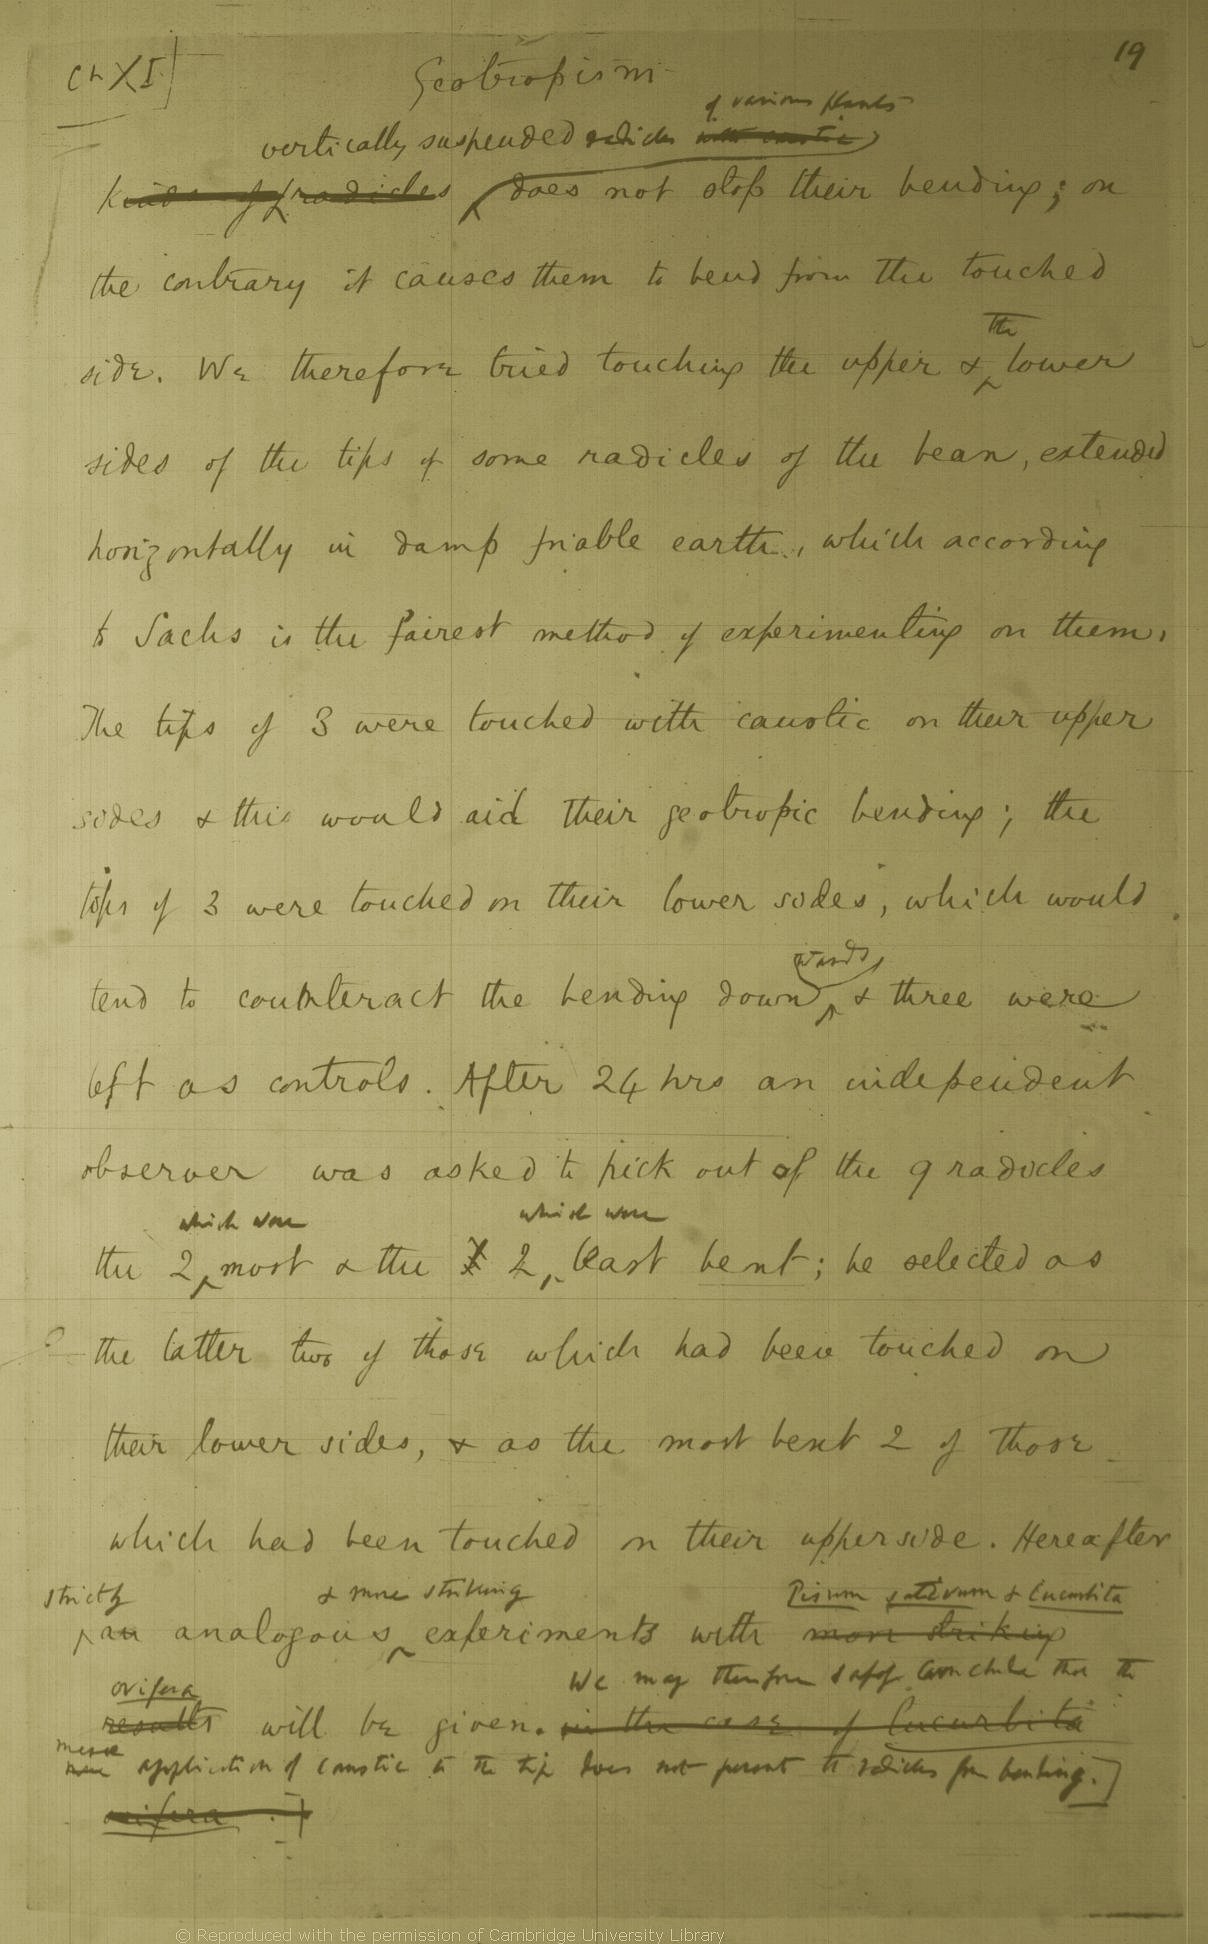 Ch XI]
Geotropism
19
of various plants
vertically suspended radicles with caustic
kinds of radicles does not stop their bending; on
the contrary it causes them to bend from the touched
the
side. We therefore tried touching the upper & lower
sides of the tips of some radicles of the bean, extended
horizontally in damp friable earth, which according
to Sachs is the fairest method of experimenting on them.
The tips of 3 were touched with caustic on their upper
sides & this would aid their geotropic bending; the
tips of 3 were touched on their lower sides, which would
wards,
tend to counteract the bending down & three were
left as controls. After 24 hrs an independent
observer was asked to pick out of the 9 radicles
which were which were
the 2 most & the 2 least bent; he selected as
the latter two of those which had been touched on
their lower sides, & as the most bent 2 of those
which had been touched on their upper side. Hereafter
strictly & more striking Pisum sativum & Cucurbita
an analogous experiments with more striking
ovifera We may therefore conclude that the
results will be given. in the case of Cucurbita
mere application of caustic to the tip does not prevent the radicles from bending.]
ovifera.]
© Reproduced with the permission of Cambridge University Library